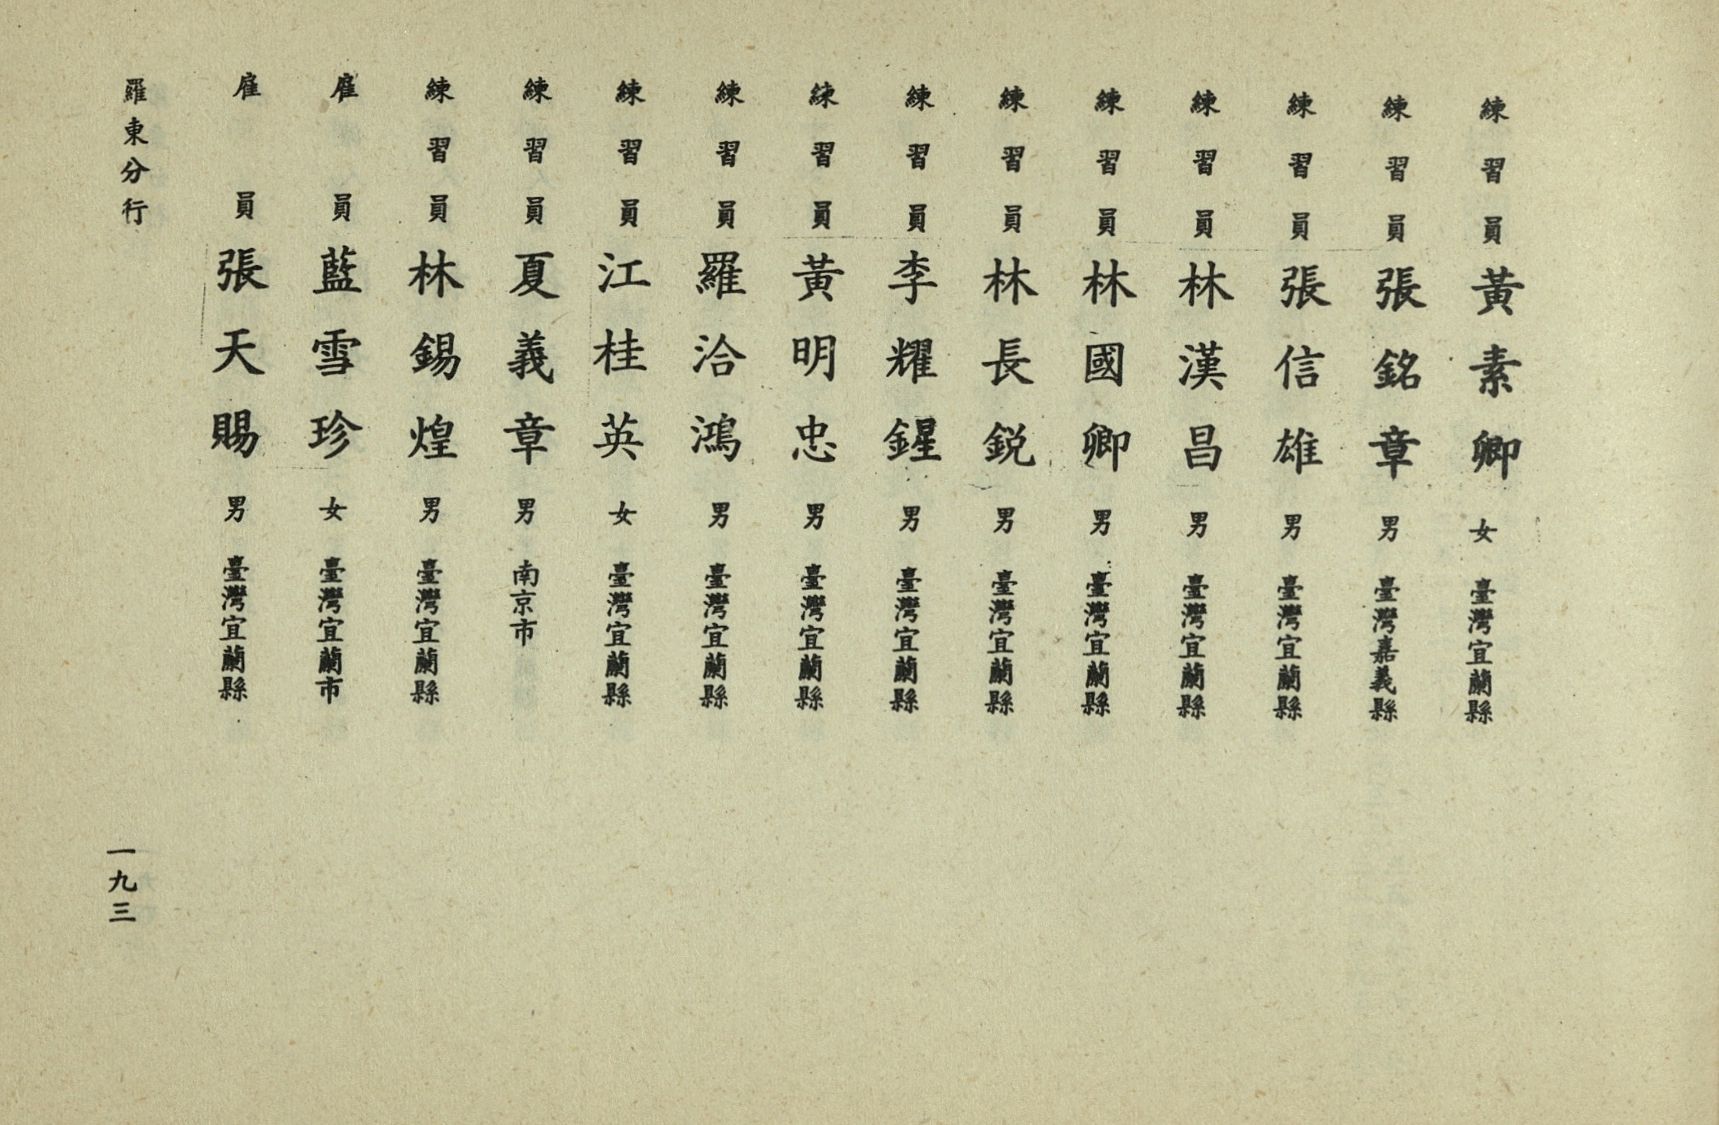 練習員 黃素卿 女 臺灣宜蘭縣
練習員 張銘章 男 臺灣嘉義縣
練習員 張信雄 男 臺灣宜蘭縣
練習員 林漢昌 男 臺灣宜蘭縣
練習員 林國卿 男 臺灣宜蘭縣
練習員 林長銳 男 臺灣宜蘭縣
練習員 李耀鍟 男 臺灣宜蘭縣
練習員 黃明忠 男 臺灣宜蘭縣
練習員 羅洽鴻 男 臺灣宜蘭縣
練習員 江桂英 女 臺灣宜蘭縣
練習員 夏義章 男 南京市
練習員 林錫煌 男 臺灣宜蘭縣
雇員 藍雪珍 女 臺灣宜蘭市
雇員 張天賜 男 臺灣宜蘭縣
羅東分行
一九三